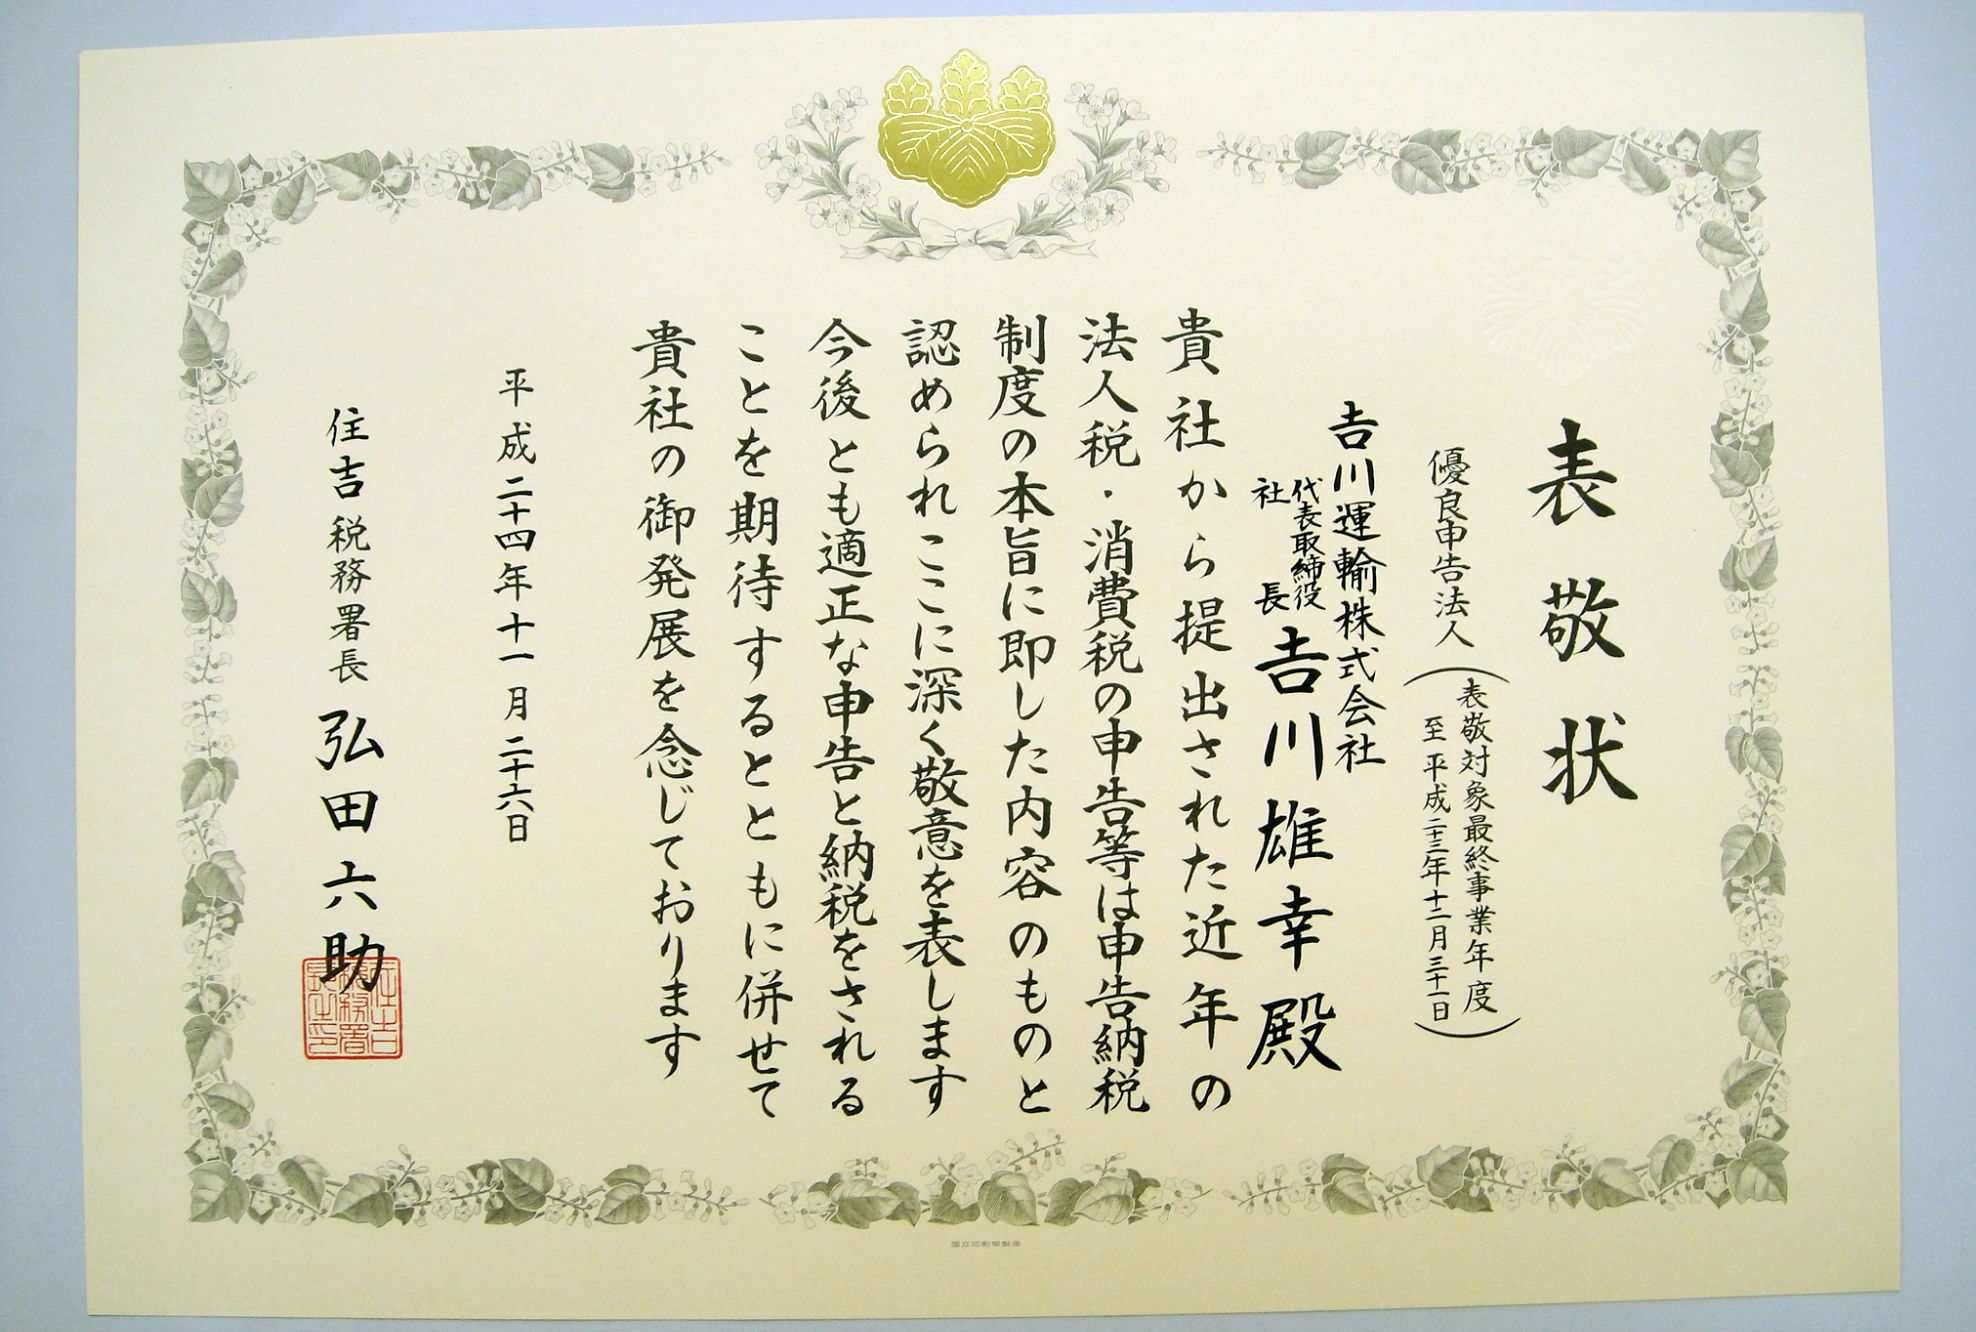 表敬状
優良申告法人
(表敬対象最終事業年度
至平成二十三年十二月三十一日)
𠮷川運輸株式会社
代表取締役
社長
𠮷川雄幸殿
貴社から提出された近年の
法人税・消費税の申告等は申告納税
制度の本旨に即した内容のものと
認められここに深く敬意を表します
今後とも適正な申告と納税をされる
ことを期待するとともに併せて
貴社の御発展を念じております
平成二十四年十一月二十六日
住吉税務署長 弘田六助
住吉税務署長之印
国立印刷局製造